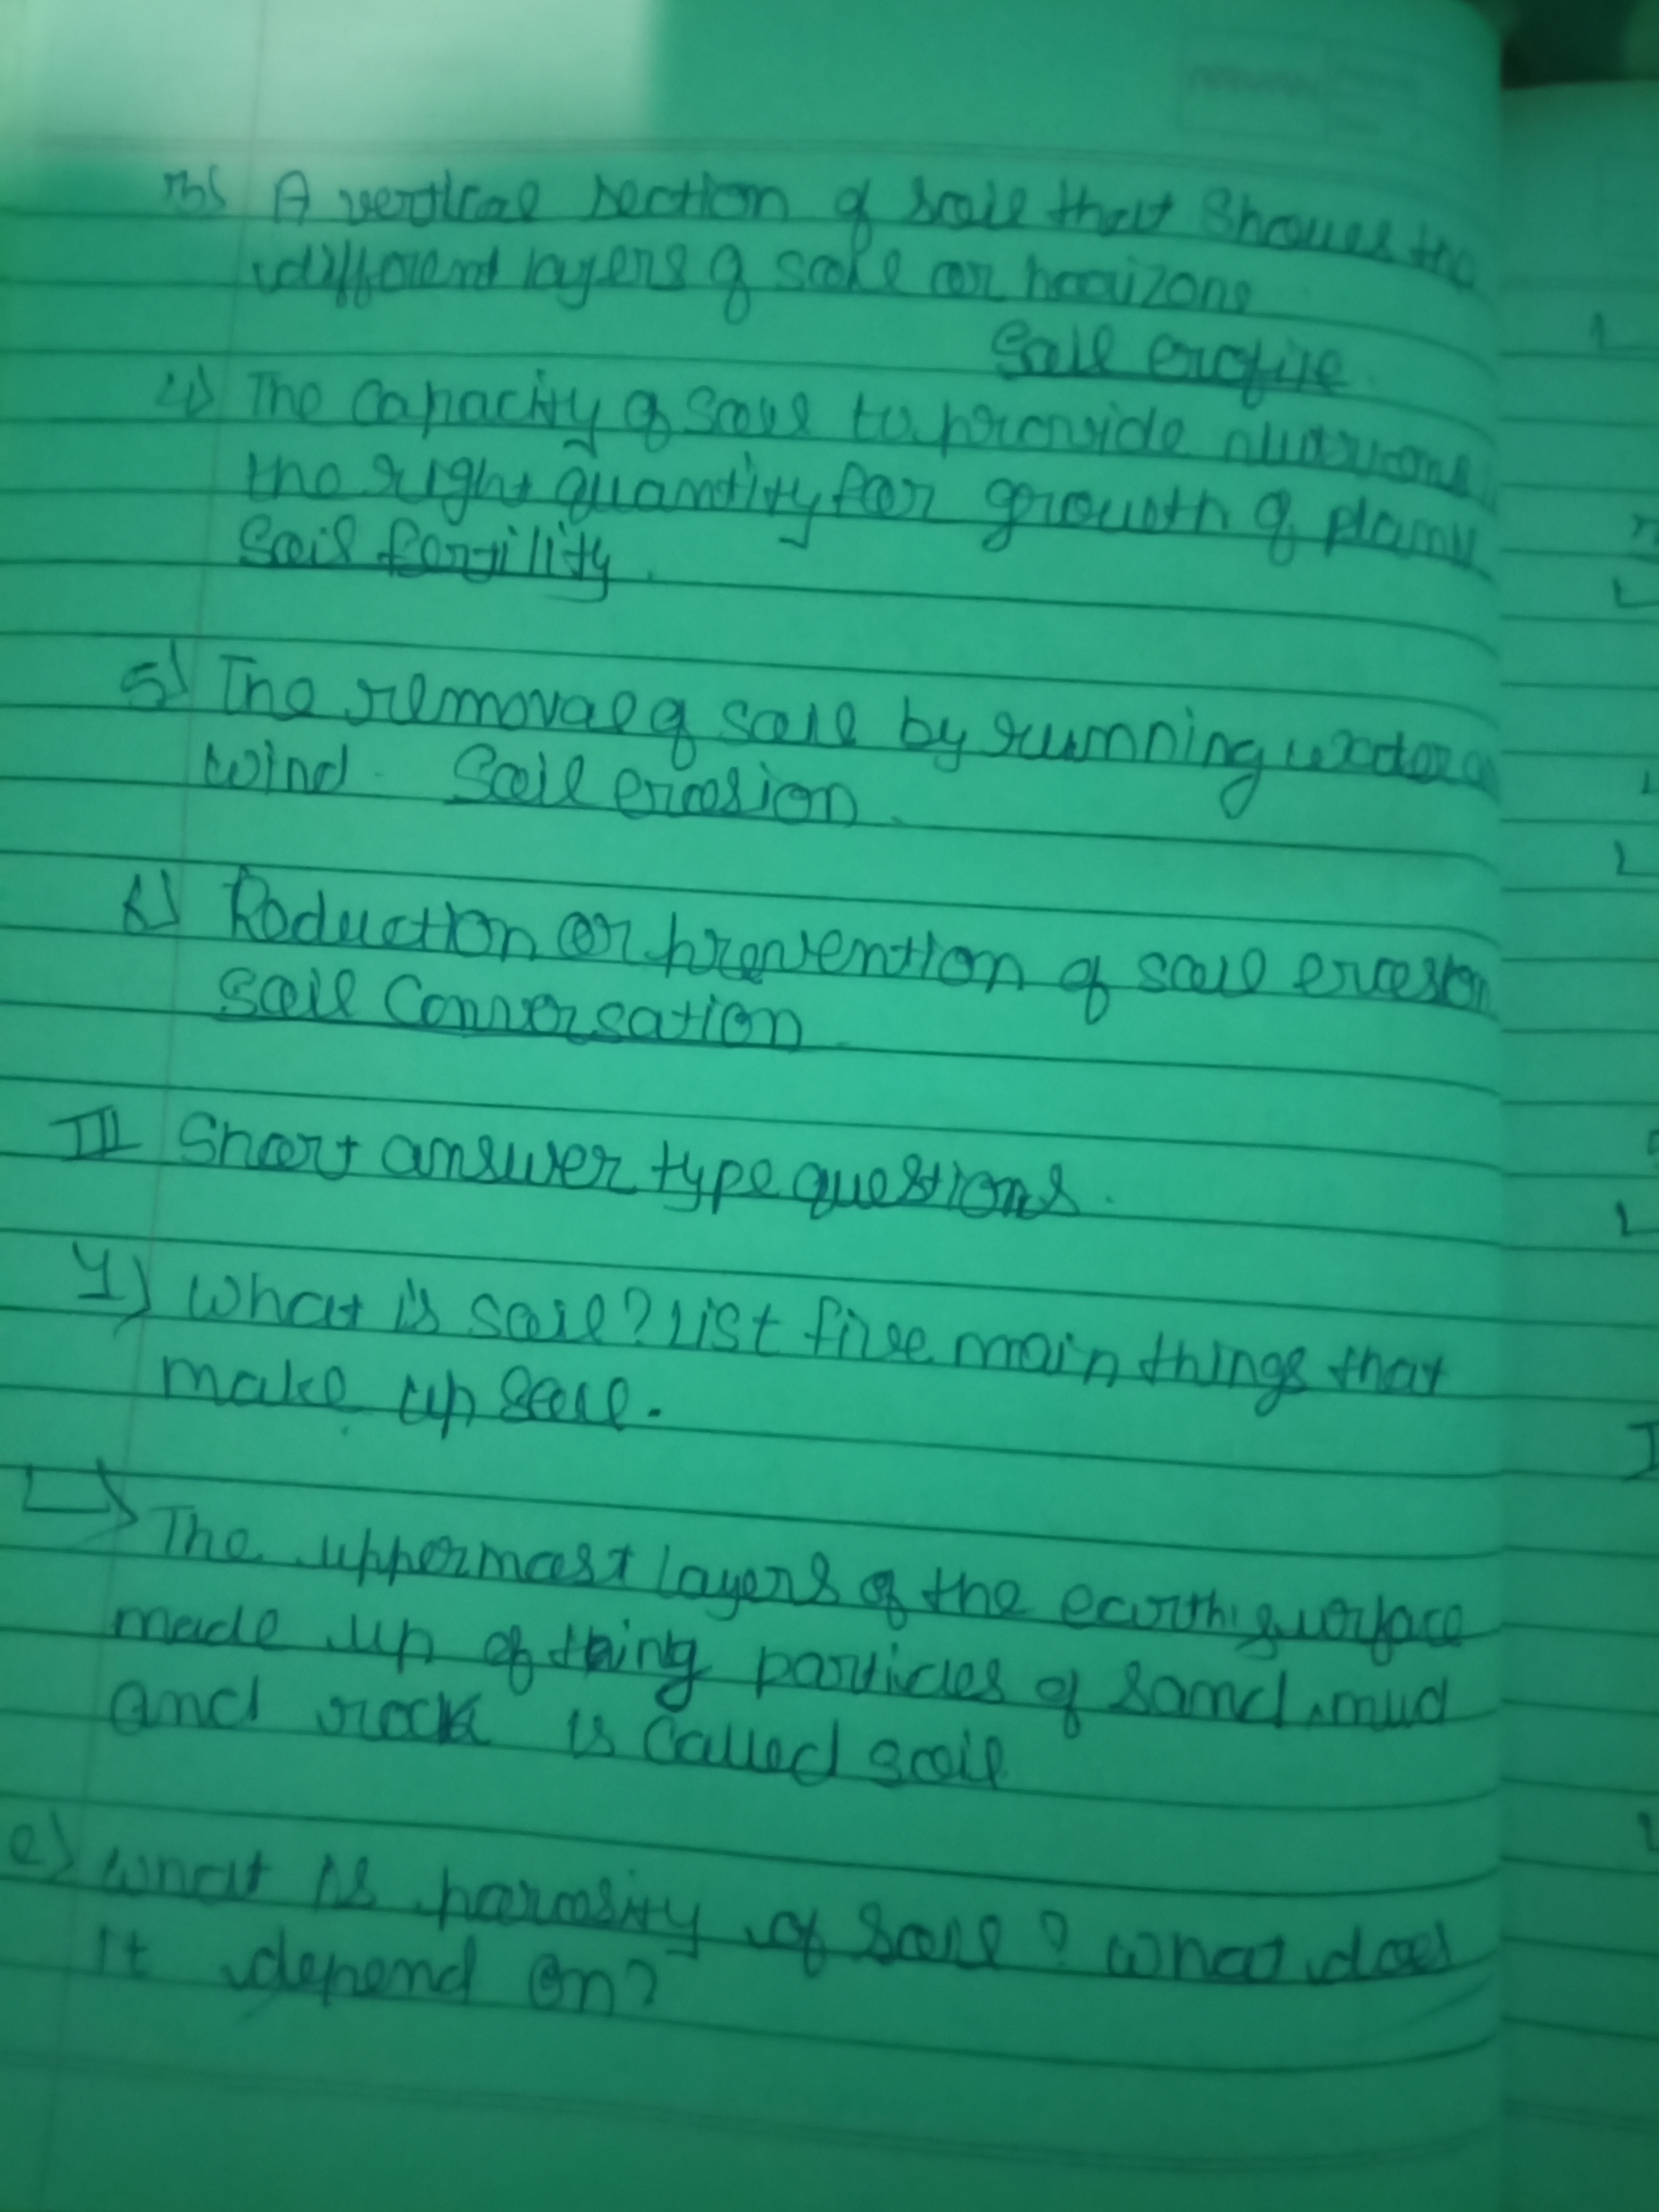 3) A vertical section of soil that Shows the
different layers of soil or horizons
Soil profile.
4) The capacity of soil to provide nutrients
the right quantity for growth of plants
Soil fertility.
5) The removal of soil by running water or
wind. Soil erosion.
6) Reduction or prevention of soil erosion
Soil Conversation
III Short answer type questions.
1) What is soil? List five main things that
make up soil.
The uppermost layers of the earth surface
made up of thing particles of sand, mud
and rock is called soil
2) What is porosity of soil? What does
it depend on?